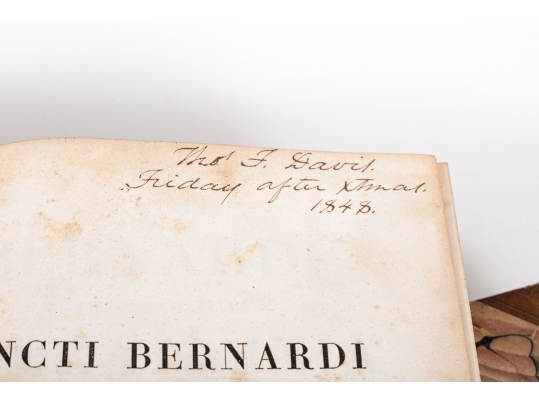 Thos F. Davis.
Friday after Xmas.
1848.
NCTI BERNARDI